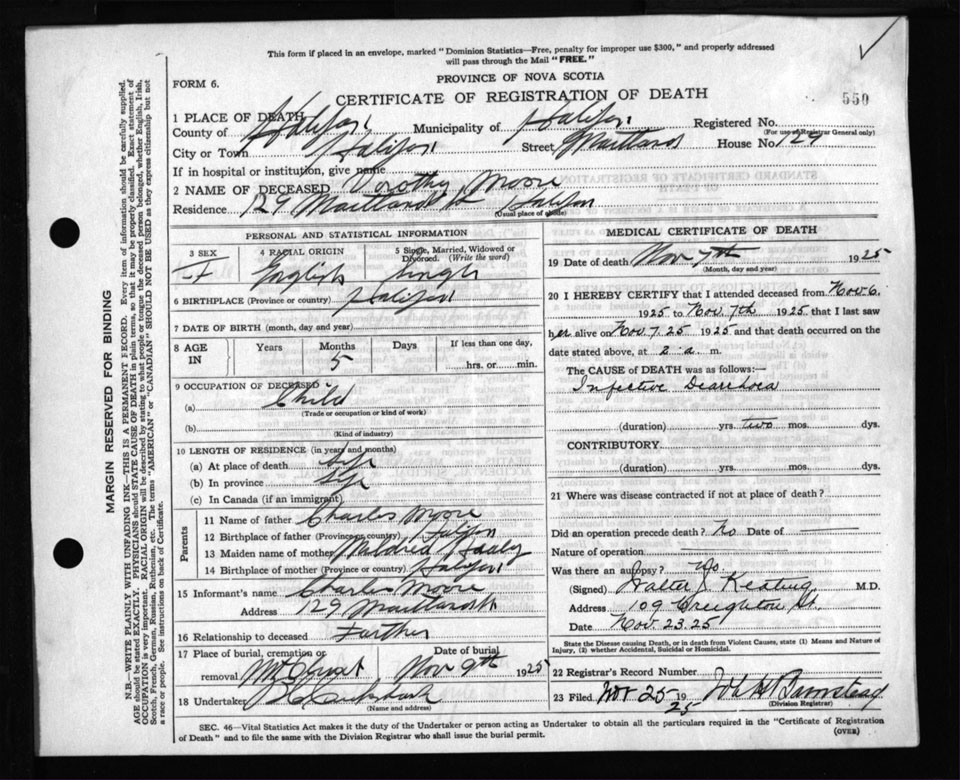 This form if placed in an envelope, marked "Dominion Statistics—Free, penalty for improper use $300," and properly addressed
will pass through the Mail "FREE."
PROVINCE OF NOVA SCOTIA
FORM 6.
CERTIFICATE OF REGISTRATION OF DEATH
550
1 PLACE OF DEATH
County of Halifax Municipality of Halifax Registered No.
(For use of Registrar General only)
City or Town Halifax Street Maitland House No. 129
If in hospital or institution, give name
2 NAME OF DECEASED Dorothy Moore
Residence 129 Maitland St Halifax
(Usual place of abode)
PERSONAL AND STATISTICAL INFORMATION
3 SEX 4 RACIAL ORIGIN 5 Single, Married, Widowed or Divorced. (Write the word)
F English Single
6 BIRTHPLACE (Province or country) Halifax
7 DATE OF BIRTH (month, day and year)
8 AGE IN Years Months Days If less than one day,
5 hrs. or min.
9 OCCUPATION OF DECEASED
(a) Child
(Trade or occupation or kind of work)
(b)
(Kind of industry)
10 LENGTH OF RESIDENCE (in years and months)
(a) At place of death Life
(b) In province Life
(c) In Canada (if an immigrant)
Parents
11 Name of father Charles Moore
12 Birthplace of father (Province or country) Halifax
13 Maiden name of mother Mildred
14 Birthplace of mother (Province or country) Halifax
15 Informant's name Charles Moore
Address 129 Maitland St
16 Relationship to deceased Farther
17 Place of burial, cremation or removal Date of burial
Mt Olivet Nov 9th 1925
18 Undertaker
(Name and address)
MEDICAL CERTIFICATE OF DEATH
19 Date of death Nov 7th 1925
(Month, day and year)
20 I HEREBY CERTIFY that I attended deceased from Nov 6.
1925 to Nov. 7th 1925 that I last saw
her alive on Nov. 7. 25 1925 and that death occurred on
date stated above, at 2. a. m.
The CAUSE of DEATH was as follows:—
Infective Diarrhoea
(duration) yrs. two mos. dys.
CONTRIBUTORY
(duration) yrs. mos. dys.
21 Where was disease contracted if not at place of death?
Did an operation precede death? No Date of
Nature of operation
Was there an autopsy? No
(Signed) Walter J Keating M.D.
Address 109 Creighton St.
Date Nov. 23. 25
State the Disease causing Death, or in death from Violent Causes, state (1) Means and Nature of
Injury, (2) whether Accidental, Suicidal or Homicidal.
22 Registrar's Record Number
23 Filed Nov 25 19 25 John H Barnstead
(Division Registrar)
SEC. 46—Vital Statistics Act makes it the duty of the Undertaker or person acting as Undertaker to obtain all the particulars required in the "Certificate of Registration
of Death" and to file the same with the Division Registrar who shall issue the burial permit.
(OVER)
MARGIN RESERVED FOR BINDING
N.B.—WRITE PLAINLY WITH UNFADING INK—THIS IS A PERMANENT RECORD. Every item of information should be carefully supplied.
AGE should be stated EXACTLY. PHYSICIANS should STATE CAUSE OF DEATH in plain terms, so that it may be properly classified. Exact statement of
OCCUPATION is very important. RACIAL ORIGIN will be described by stating to what people or tongue the deceased person belonged, whether English, Irish,
Scotch, French, German, Russian, Ruthenian, etc. The terms "AMERICAN" or "CANADIAN" SHOULD NOT BE USED as they express citizenship but not
a race or people. See instructions on back of Certificate.